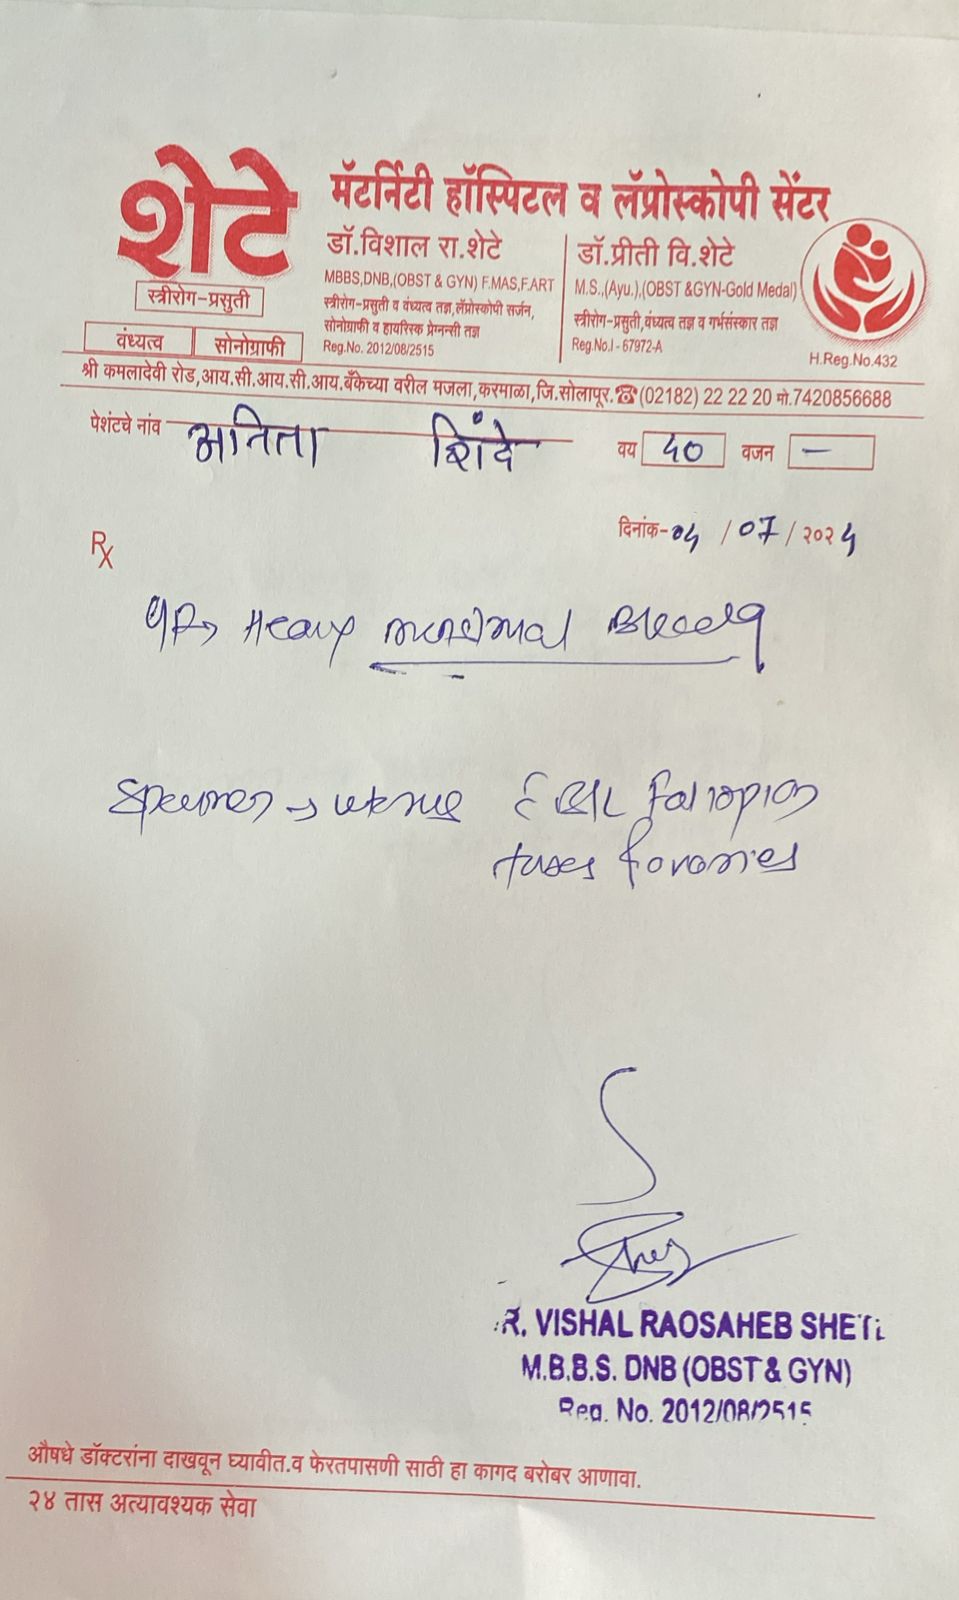 शेटे
मॅटर्निटी हॉस्पिटल व लॅप्रोस्कोपी सेंटर
स्त्रीरोग-प्रसुती
वंध्यत्व सोनोग्राफी
डॉ.विशाल रा.शेटे
MBBS,DNB,(OBST & GYN) F.MAS,F.ART
स्त्रीरोग-प्रसुती व वंध्यत्व तज्ञ,लॅप्रोस्कोपी सर्जन,
सोनोग्राफी व हायरिस्क प्रेग्नन्सी तज्ञ
Reg.No. 2012/08/2515
डॉ.प्रीती वि.शेटे
M.S.,(Ayu.),(OBST &GYN-Gold Medal)
स्त्रीरोग-प्रसुती,वंध्यत्व तज्ञ व गर्भसंस्कार तज्ञ
Reg.No.I - 67972-A
H.Reg.No.432
श्री कमलादेवी रोड,आय.सी.आय.सी.आय.बँकेच्या वरील मजला,करमाळा,जि.सोलापूर.☎(02182) 22 22 20 मो.7420856688
पेशंटचे नांव अनिता शिंदे वय 40 वजन —
दिनांक- /07/२०२
Rx
Heavy menstrual Bleeding
Specimen → uterus c B/L fallopian
tubes & ovaries
R. VISHAL RAOSAHEB SHETE
M.B.B.S. DNB (OBST & GYN)
Reg. No. 2012/08/2515
औषधे डॉक्टरांना दाखवून घ्यावीत.व फेरतपासणी साठी हा कागद बरोबर आणावा.
२४ तास अत्यावश्यक सेवा